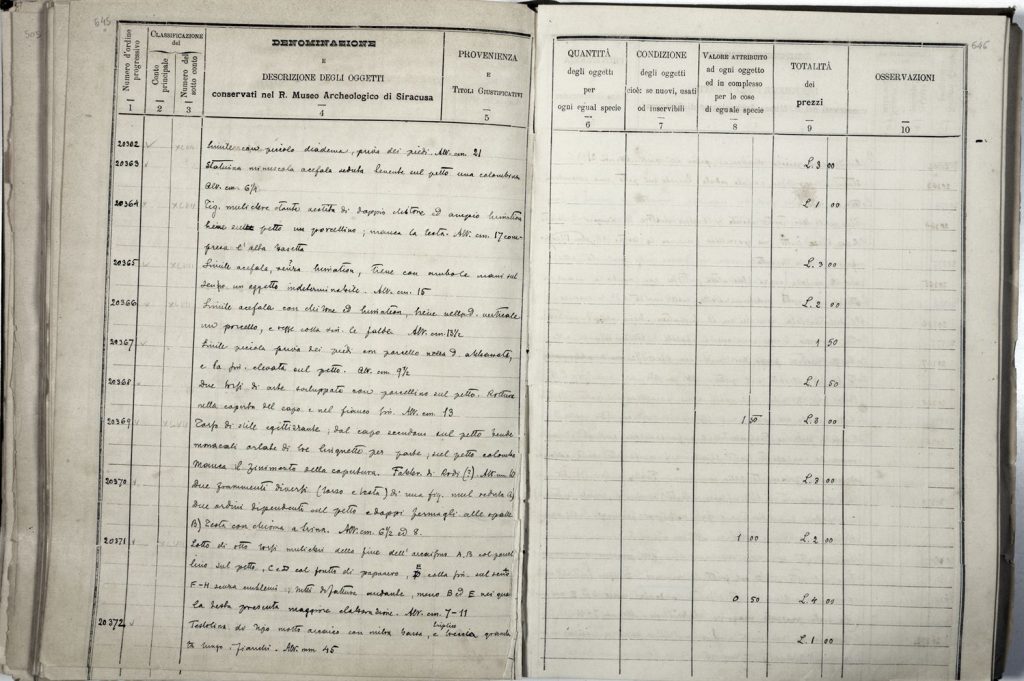 645
Numero d'ordine progressivo
CLASSIFICAZIONE
del
Conto principale
Numero del sotto conto
DENOMINAZIONE
E
DESCRIZIONE DEGLI OGGETTI
conservati nel R. Museo Archeologico di Siracusa
PROVENIENZA
E
TITOLI GIUSTIFICATIVI
1 2 3 4 5
20362 Simile con piccolo diadema, priva dei piedi. Alt. cm. 21
20363 Statuina minuscola acefala seduta tenente sul petto una colombina
Alt. cm. 6½
20364 Fig. muliebre stante vestita di doppio chitone ed ampio himation
tiene sul petto un porcellino; manca la testa. Alt. cm. 17 com-
presa l'alta basetta
20365 Simile acefala, senza himation, tiene con ambo le mani sul
un oggetto indeterminabile. Alt. cm. 15
20366 Simile acefala con chitone ed himation, tiene nella d. verticale
un porcello, e colla sin. le falde. Alt. cm. 13½
20367 Simile piccola priva dei piedi con porcello nella d. abbassata,
e la sin. elevata sul petto. Alt. cm. 9½
20368 Due torsi di arte sviluppata con porcellino sul petto. Rotture
nella coperta del capo e nel fianco sin. Alt. cm. 13
20369 Torso di stile egittizzante; dal capo scendono sul petto bende
ornate di tre per parte; sul petto colomba
Manca il della Fabbr. di Rodi (?) Alt. cm.
20370 Due frammenti diversi (torso e testa) di una fig. mul. seduta A)
Due ordini dipendente sul petto e doppi fermagli alle spalle
B) Testa con chioma a Alt. cm. 6½ ed 8.
20371 Lotto di otto torsi muliebri della fine dell' A.B col porcel-
lino sul petto, C e D col frutto di papavero, E colla sin. sul seno
F-H senza emblemi; tutti di fattura andante, meno B ed E nei qua-
la testa presenta maggiore elaborazione. Alt. cm. 7-11
20372 Testolina di tipo molto arcaico con mitra bassa, e triplice treccia
lungo i fianchi. Alt. mm 45
646
QUANTITÀ
degli oggetti
per
ogni egual specie
CONDIZIONE
degli oggetti
cioè: se nuovi, usati
od inservibili
VALORE ATTRIBUITO
ad ogni oggetto
ed in complesso
per le cose
di eguale specie
TOTALITÀ
dei
prezzi
OSSERVAZIONI
6 7 8 9 10
L. 3 00
L. 1 00
L. 3 00
L. 2 00
1 50
L. 1 50
1 50 L. 3 00
L. 3 00
1 00 L. 2 00
0 50 L. 4 00
L. 1 00